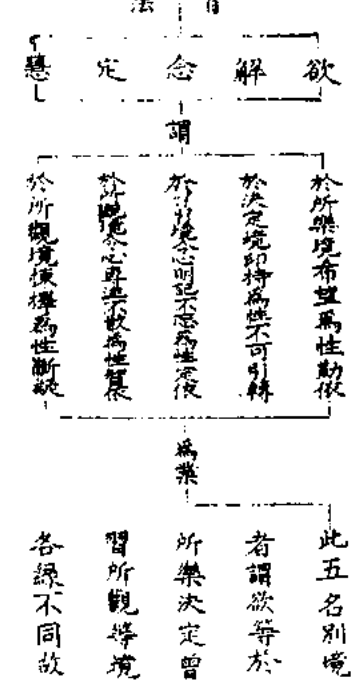 法 有
欲 解 念 定 慧
謂
於所樂境希望為性勤依
於決定境印持為性不可引轉
於曾習境令心明記不忘為性定依
於所觀境令心專注不散為性智依
於所觀境揀擇為性斷疑
為業
此五名別境
者謂欲等於
所樂決定曾
習所觀等境
各緣不同故